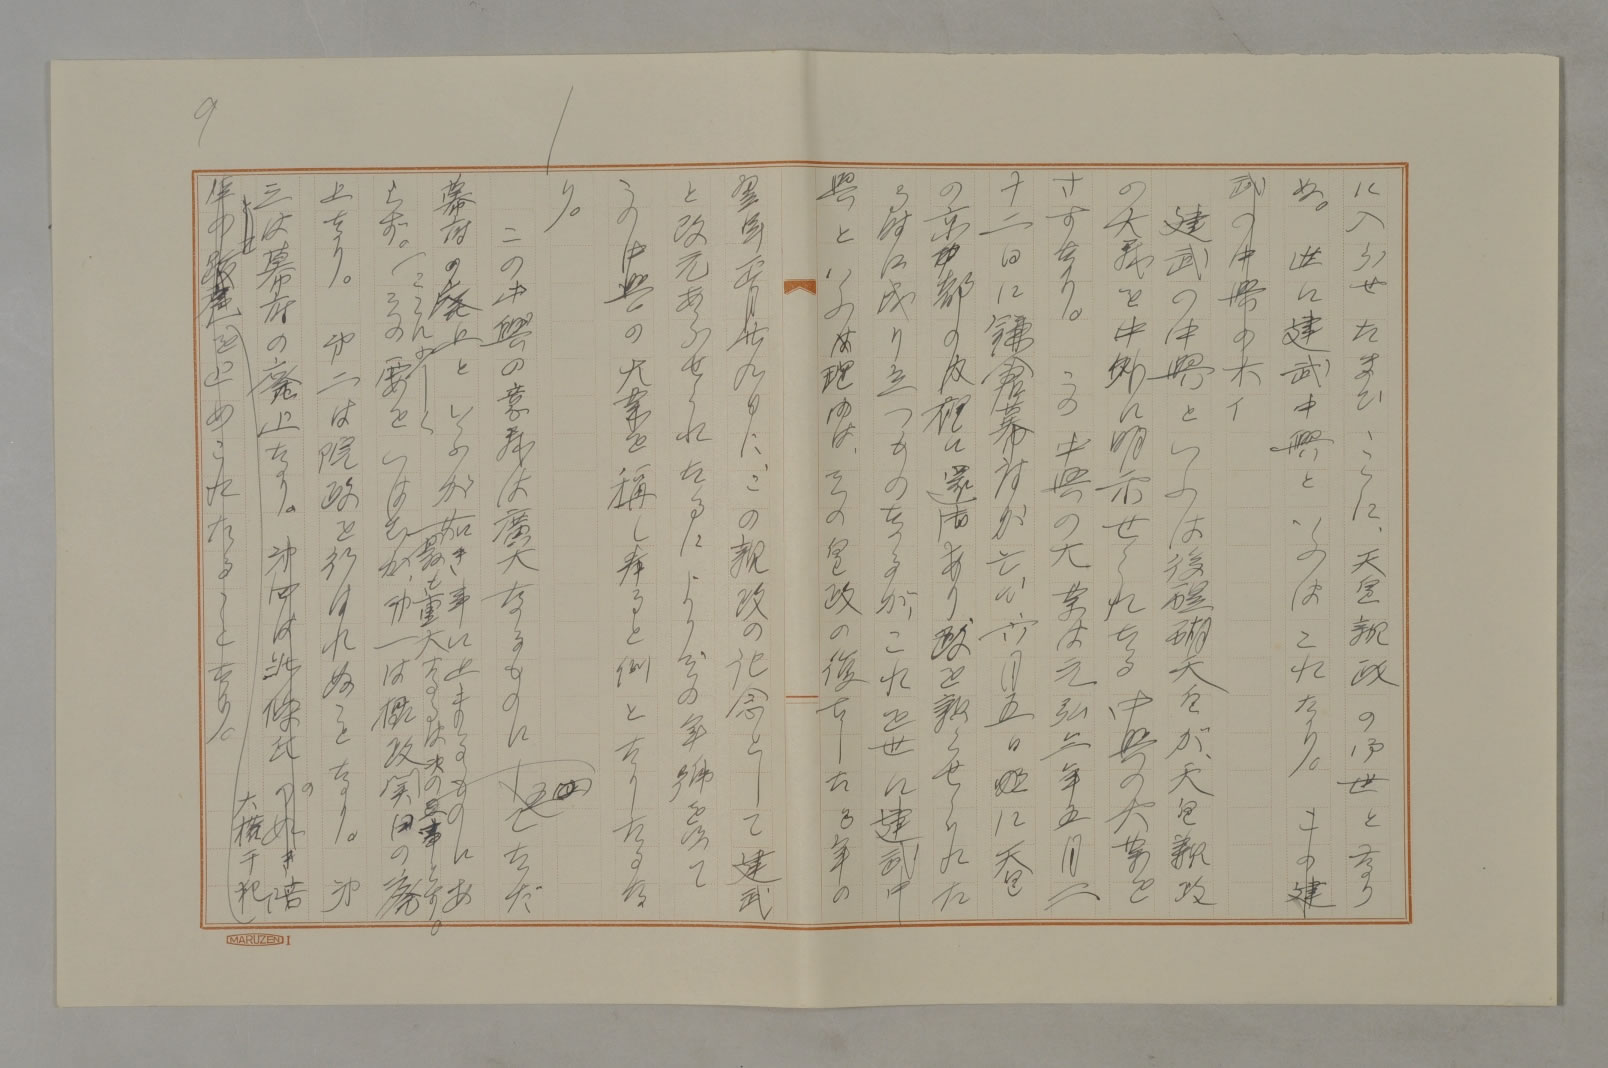 に入らせたまひ、ここに、天皇親政の御世となり
ぬ。世に建武中興といふはこれなり。この建
武の中興の大イ
建武の中興といふは後醍醐天皇が、天皇親政
の大義を中外に明示せられたる中興の大業を
さすなり。この中興の大業は元弘三年五月二
十二日に鎌倉幕府が亡び六月五日に天皇
の京都の皇居に還幸あり政を親らせられた
る時に成り立つものなるが、これを世に建武中
興といふ理由は、その皇政の復したる年の
翌年正月廿九日に、この親政の記念として建武
と改元あらせられたるによりその年号を以て
この中興の大業を称し奉ると例となりたるな
り。
この中興の意義は廣大なるものにしてただ
幕府の廃止といふが如き事に止まるものにあ
らず。ここにその要をいはむが、第一は摂政関白の廃
最も重大なるは次の三事となす。
止なり。第二は院政を行はれぬことなり。第
三は幕府の廃止なり。第四は北條氏の如き陪
臣の
を止めこれたることなり。
大権干犯
9
MARUZEN I